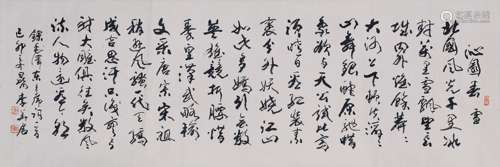 沁園春 雪
北國風光千里冰
封萬里雪飄望長
城內外惟餘莽莽
大河上下頓失滔滔
山舞銀蛇原馳蠟
象欲與天公試比高
須晴日看紅裝素
裹分外妖嬈江山
如此多嬌引無數
英雄競折腰惜
秦皇漢武略輸
文采唐宗宋祖
稍遜風騷一代天驕
成吉思汗只識彎弓
射大雕俱往矣數風
流人物還看今朝
錄毛澤東主席詞一首
己卯